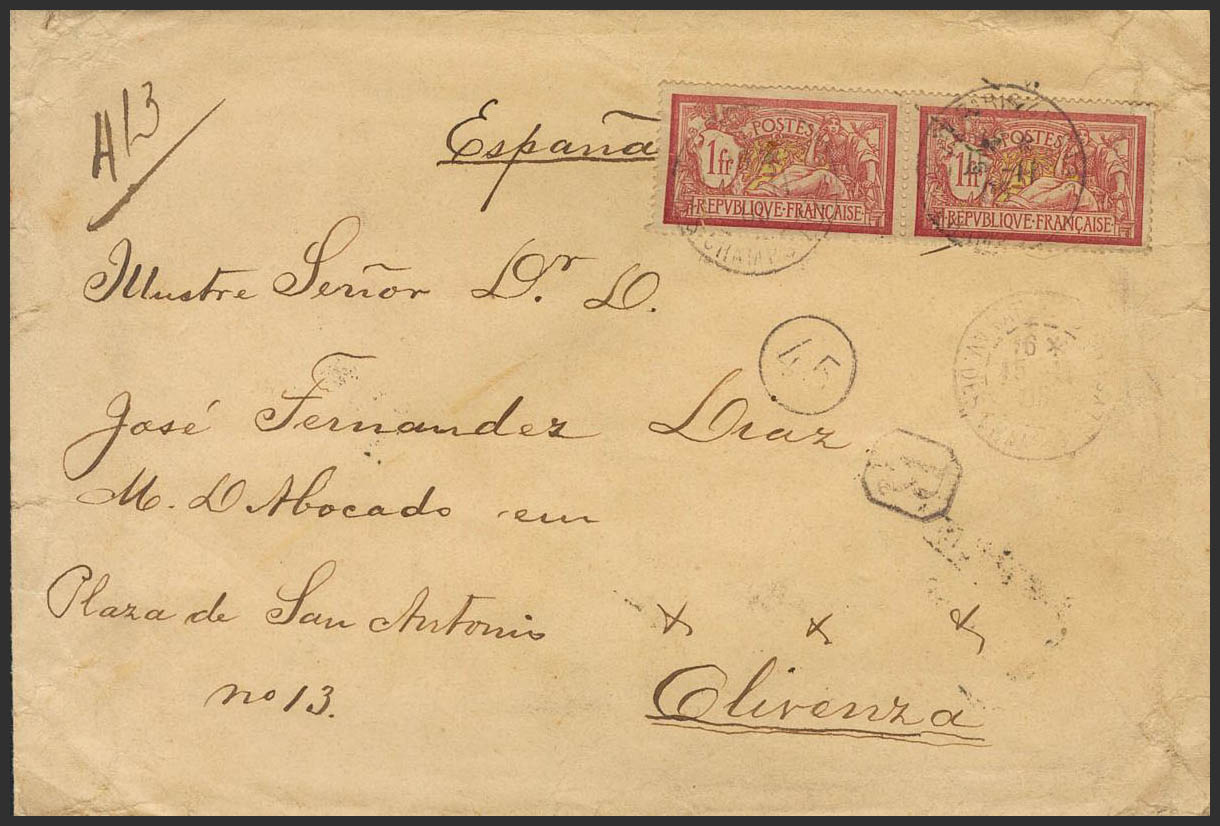 413
España
POSTES
1 fr
REPVBLIQVE·FRANÇAISE
POSTES
1 fr
REPVBLIQVE·FRANÇAISE
Illustre Señor D.r D.
45
16
José Fernandez Diaz
R
M. D Abocado em
Plaza de San Antonio
x x x
no 13.
Olivenza